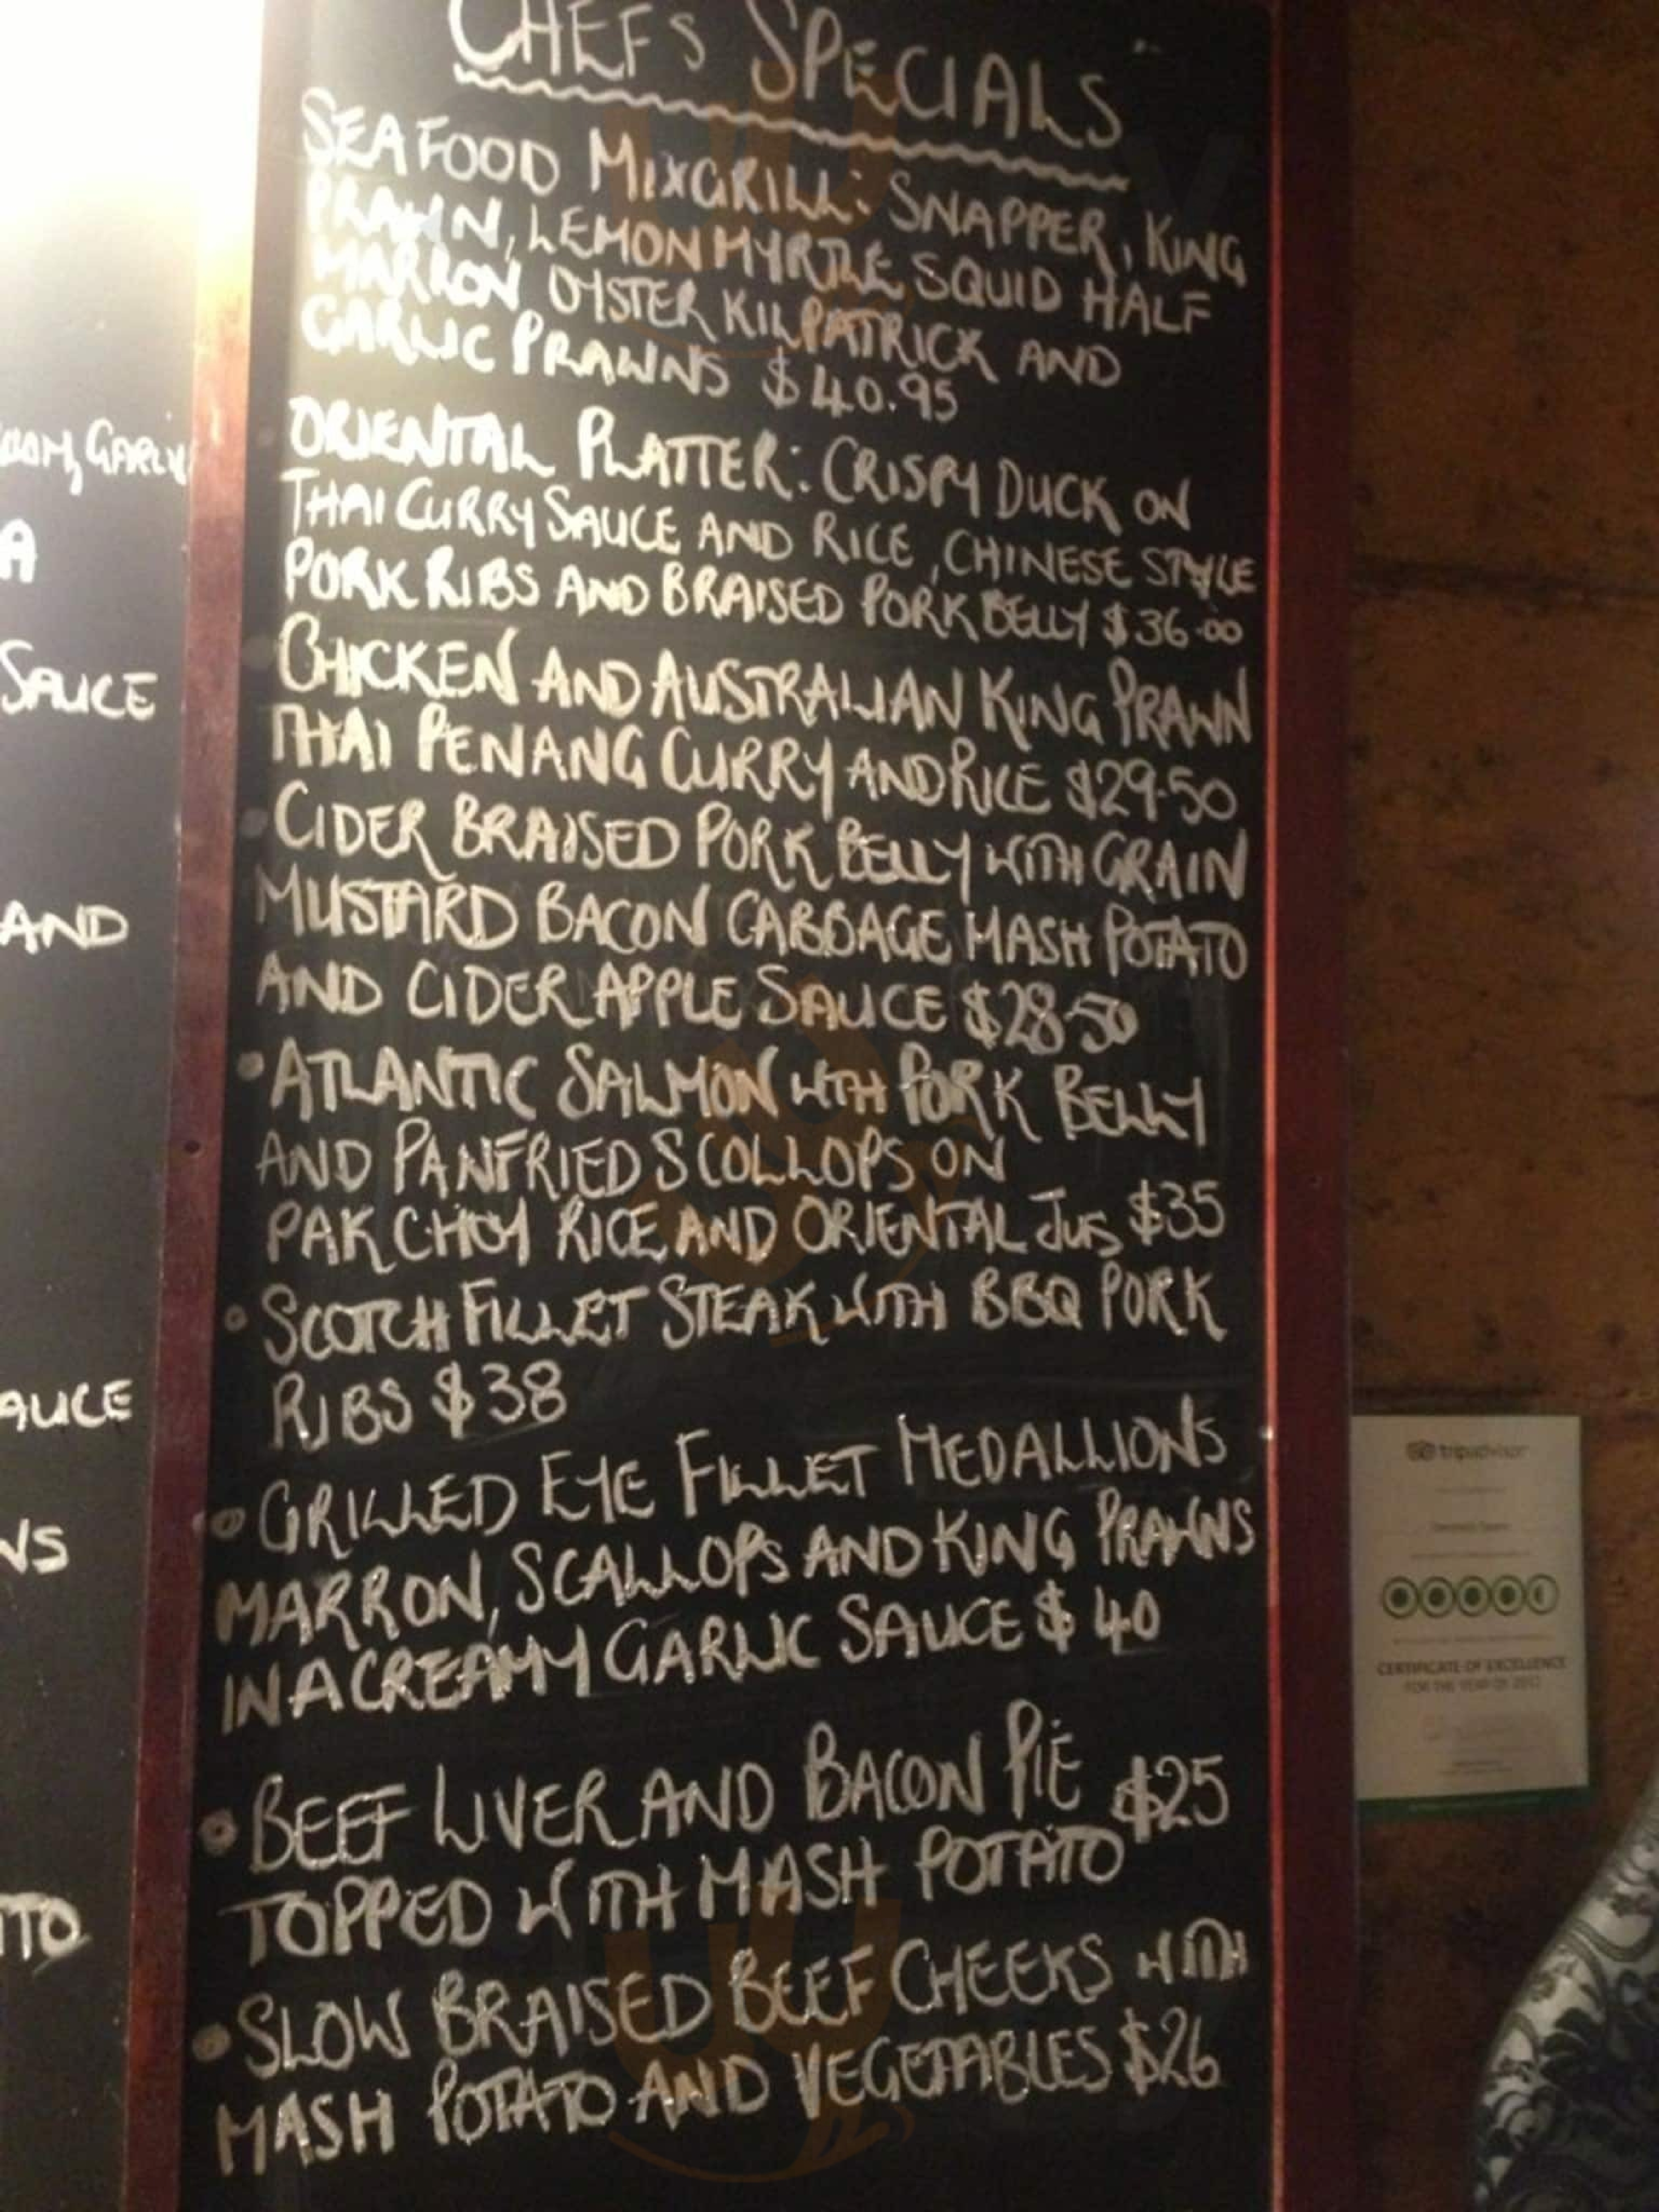 CHEFS SPECIALS
SEAFOOD MIXGRILL: SNAPPER, KING
PRAWN, LEMON MYRTLE SQUID HALF
MARRON, OYSTER KILPATRICK AND
GARLIC PRAWNS $40.95
ORIENTAL PLATTER: CRISPY DUCK ON
THAI CURRY SAUCE AND RICE, CHINESE STYLE
PORK RIBS AND BRAISED PORK BELLY $36.00
CHICKEN AND AUSTRALIAN KING PRAWN
THAI PENANG CURRY AND RICE $29.50
CIDER BRAISED PORK BELLY WITH GRAIN
MUSTARD BACON CABBAGE MASH POTATO
AND CIDER APPLE SAUCE $28.50
• ATLANTIC SALMON WITH PORK BELLY
AND PANFRIED SCOLLOPS ON
PAK CHOY RICE AND ORIENTAL JUS $35
• SCOTCH FILLET STEAK WITH BBQ PORK
RIBS $38
• GRILLED EYE FILLET MEDALLIONS
MARRON, SCALLOPS AND KING PRAWNS
IN A CREAMY GARLIC SAUCE $40
• BEEF LIVER AND BACON PIE $25
TOPPED WITH MASH POTATO
• SLOW BRAISED BEEF CHEEKS WITH
MASH POTATO AND VEGETABLES $26
A
SAUCE
AND
AUCE
NS
TO
tripadvisor
CERTIFICATE OF EXCELLENCE
FOR THE YEAR OF 2012